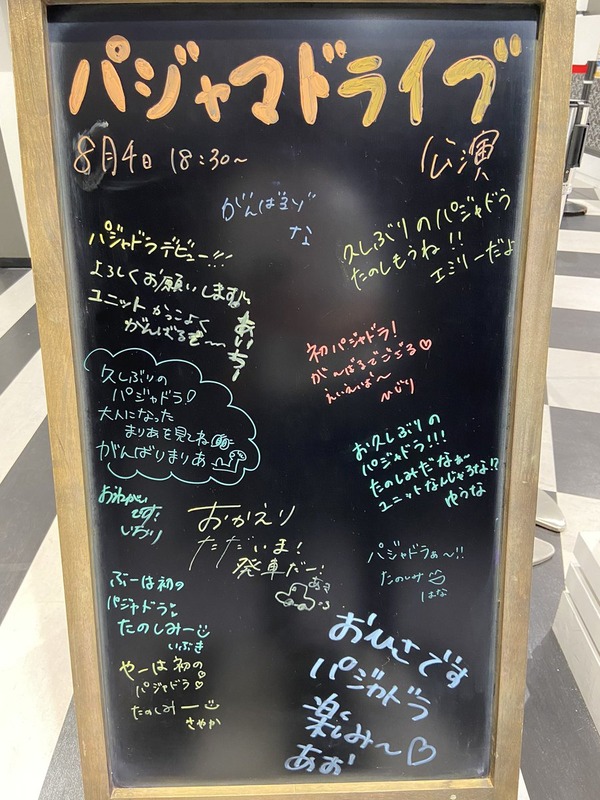 パジャマドライブ
8月4日 18:30~
公演
がんばるゾ
な
久しぶりのパジャドラ
たのしもうね!!
エミリーだよ
パジャドラデビュー!!!
よろしくお願いします。
ユニットかっこよく
がんばるぞ〜
あいちー
初パジャドラ!
がんばるでござる♡
えいえいば〜
ひじり
久しぶりの
パジャドラ!
大人になった
まりあを見てね
がんばりまりあ
お久しぶりの
パジャドラ!!!
たのしみだなぁ~
ユニットなんじゃろな!?
ゆうな
おねがい
です!
しおり
おかえり
ただいま!
発車だー!
パジャドラぁ〜!!
たのしみ
はな
ぶーは初の
パジャドラ
たのしみー
いぶき
やーは初の
パジャドラ
たのしみー
さやか
おひさです
パジャドラ
楽しみ〜♡
あお